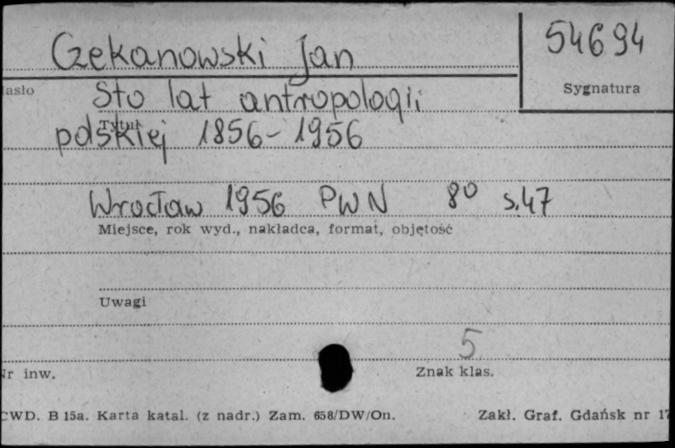 54694
Czekanowski Jan
Sygnatura
Sto lat antropologii
Tytuł
polskiej 1856-1956
Wrocław 1956 PWN 8° s.47
Miejsce, rok wyd., nakładca, format, objętość
Uwagi
5
Nr inw.
Znak klas.
CWD. B 15a. Karta katal. (z nadr.) Zam. 658/DW/On.
Zakł. Graf. Gdańsk nr 17